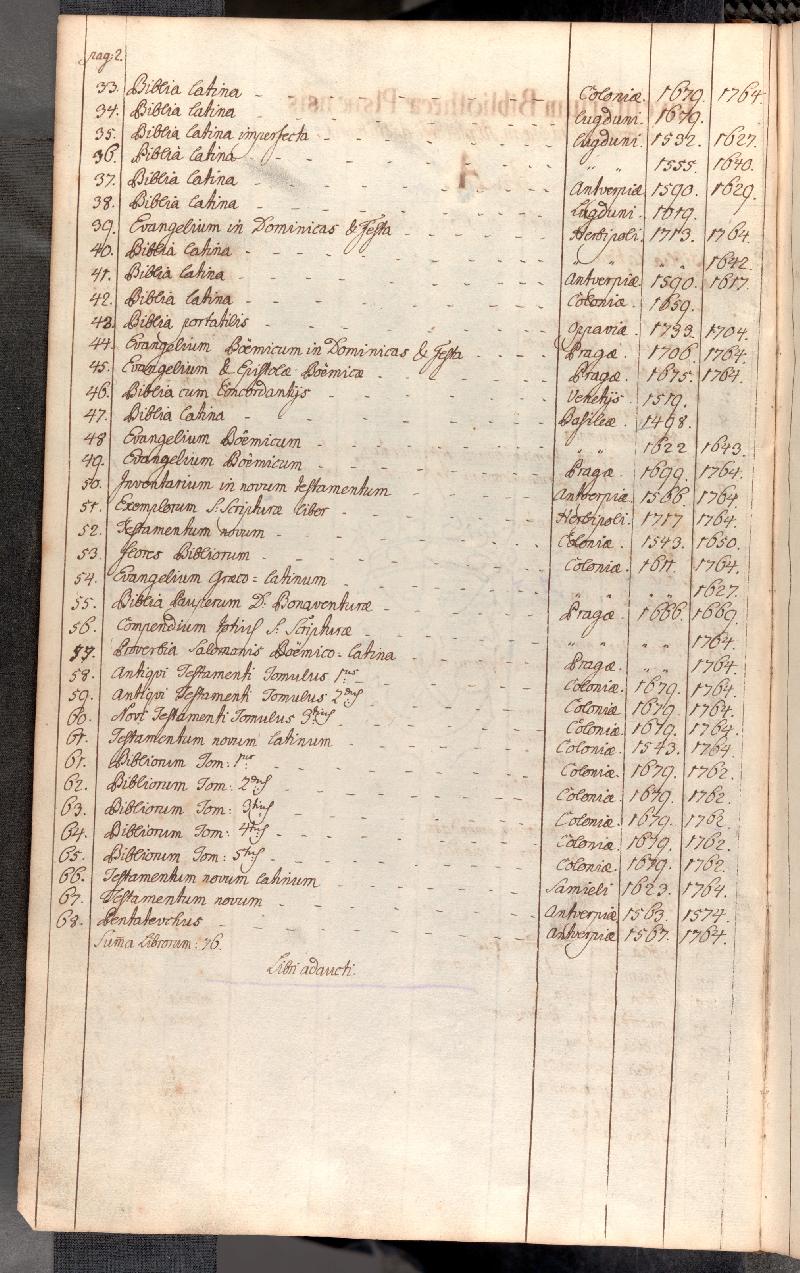 pag: 2.
33. Biblia latina - Coloniæ 1679. 1764.
34. Biblia latina - Lugduni. 1679.
35. Biblia latina imperfecta - Lugduni. 1532. 1627.
36. Biblia latina - " " 1555. 1640.
37. Biblia latina - Antverpiæ 1590. 1629.
38. Biblia latina - Lugduni. 1619.
39. Evangelium in Dominicas & Festa - Herbipoli. 1713. 1764.
40. Biblia latina - " " " " 1642.
41. Biblia latina - Antverpiæ 1590. 1617.
42. Biblia latina - Coloniæ. 1659.
43. Biblia portatilis - Oppaviæ 1733. 1704.
44. Evangelium Boëmicum in Dominicas & Festa - Pragæ. 1706. 1764.
45. Evangelium & Epistolæ Boëmicæ - Pragæ. 1675. 1764.
46. Biblia cum Concordantijs - Venetijs 1519.
47. Biblia latina - Basileæ 1498.
48 Evangelium Boëmicum - " " 1622 1643.
49. Evangelium Boëmicum - Pragæ. 1699. 1764.
50. Inventarium in novum testamentum - Antverpiæ 1566. 1764.
51. Exemplorum S: Scripturæ liber - Herbipoli. 1717 1764.
52. Testamentum novum - Coloniæ. 1543. 1650.
53. Flores Bibliorum - Coloniæ. 1611. 1764.
54. Evangelium Græco = latinum - " " " " 1627.
55. Biblia Pauperum D. Bonaventuræ - Pragæ. 1666. 1669.
56. Compendium totius S. Scripturæ - " " " " 1764.
57. Proverbia Salomonis Boëmico = latina - Pragæ. " " 1764.
58. Antiqui Testamenti Tomulus 1mus - Coloniæ. 1679. 1764.
59. Antiqui Testamenti Tomulus 2dus - Coloniæ 1679. 1764.
60. Novi Testamenti Tomulus 3tius - Coloniæ. 1679. 1764.
61. Testamentum novum latinum - Coloniæ. 1543. 1764.
61. Bibliorum Tom: 1us - Coloniæ. 1679. 1762.
62. Bibliorum Tom: 2dus - Coloniæ. 1679. 1762.
63. Bibliorum Tom: 3tius - Coloniæ. 1679. 1762
64. Bibliorum Tom: 4tus - Coloniæ. 1679. 1762.
65. Bibliorum Tom: 5tus - Coloniæ. 1679. 1762.
66. Testamentum novum latinum - Samieli 1623. 1764.
67. Testamentum novum - Antverpiæ 1563. 1574.
68. Pentatevchus - Antverpiæ 1567. 1764.
Suma Librorum: 76.
Libri adaucti.